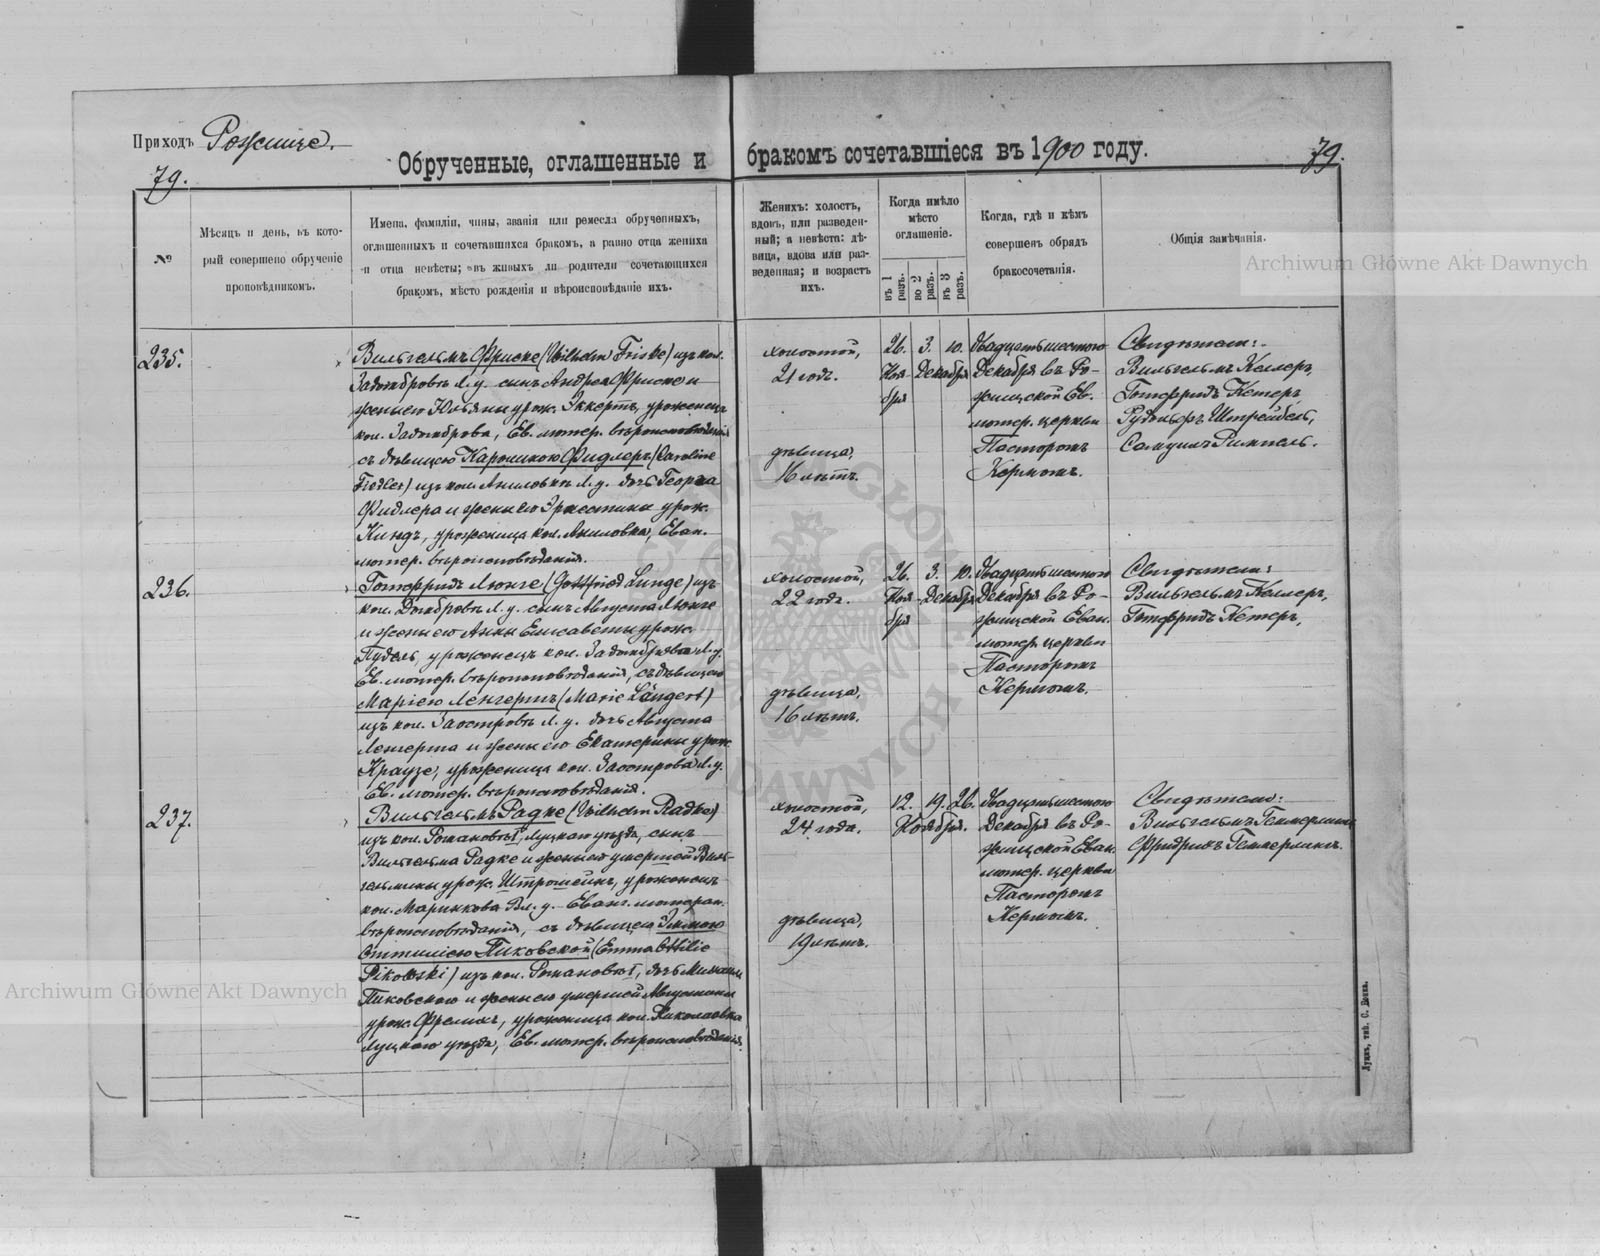 Приходъ Рожище.
Обрученные, оглашенные и бракомъ сочетавшіеся въ 1900 году.
79.
79.
№
Мѣсяцъ и день, въ кото-
рый совершено обрученіе
проповѣдникомъ.
Имена, фамиліи, чины, званія или ремесла обрученныхъ,
оглашенныхъ и сочетавшихся бракомъ, а равно отца жениха
и отца невѣсты; въ живыхъ ли родители сочетающихся
бракомъ, мѣсто рожденія и вѣроисповѣданіе ихъ.
Женихъ: холостъ,
вдовъ, или разведен-
ный; а невѣста: дѣ-
вица, вдова или раз-
веденная; и возрастъ
ихъ.
Когда имѣло
мѣсто
оглашеніе.
въ 1 разъ.
во 2 разъ.
въ 3 разъ.
Когда, гдѣ и кѣмъ
совершенъ обрядъ
бракосочетанія.
Общія замѣчанія.
235.
Вильгельмъ Фриске (Wilhelm Friske) изъ кол.
Задомбровъ Л. у. сынъ Андрея Фриске и
жены его Юльяны урож. Эккертъ, уроженецъ
кол. Задомброва, Ев. лютер. вѣроисповѣданія
съ дѣвицею Каролиною Фидлеръ (Caroline
Fiedler) изъ кол. Аниловка Л. у. дочь Георга
Фидлера и жены его Эрнестины урож.
Киндъ, уроженица кол. Аниловка, Еван.
лютер. вѣроисповѣданія.
холостой,
21 годъ.
дѣвица,
16 лѣтъ.
26. 3. 10.
Ноя- Декабря
бря
Двадцать шестого
Декабря въ Ро-
жищской Ев.
лютер. церкви
Пасторомъ
Кермомъ.
Свидѣтели:
Вильгельмъ Келлеръ,
Готфридъ Кетеръ,
Рудольфъ Штрейбель,
Самуилъ Римпель.
236.
Готфридъ Люнге (Gottfried Lunge) изъ
кол. Домбровъ Л. у. сынъ Августа Люнге
и жены его Анны Елисаветы урож.
Пудель, уроженецъ кол. Задомброва Л. у.
Ев. лютер. вѣроисповѣданія, съ дѣвицею
Маріею Ленгертъ (Marie Längert)
изъ кол. Заостровъ Л. у. дочь Августа
Ленгерта и жены его Екатерины урож.
Краузе, уроженица кол. Заострова Л. у.
Ев. лютер. вѣроисповѣданія.
холостой,
22 года.
дѣвица,
16 лѣтъ.
26. 3. 10.
Ноя- Декабря
бря
Двадцать шестого
Декабря въ Ро-
жищской Еван.
лютер. церкви
Пасторомъ
Кермомъ.
Свидѣтели:
Вильгельмъ Келлеръ,
Готфридъ Кетеръ,
237.
Вильгельмъ Радке (Wilhelm Radke)
изъ кол. Романовъ I, Луцкаго уѣзда, сынъ
Вильгельма Радке и жены его умершей Виль-
гельмины урож. Штрошейнъ, уроженецъ
кол. Маринкова Вл. у. Еванг. лютеран.
вѣроисповѣданія, съ дѣвицею Эммою
Оттиліею Пиковской (Emma Ottilie
Pikowski) изъ кол. Романовъ I, дочь Михаила
Пиковского и жены его умершей Августины
урож. Фремихъ, уроженица кол. Николаевка
Луцкаго уѣзда, Ев. лютер. вѣроисповѣданія.
холостой,
24 года.
дѣвица,
19 лѣтъ.
12. 19. 26.
Ноября.
Двадцать шестого
Декабря въ Ро-
жищской Еван.
лютер. церкви
Пасторомъ
Кермомъ.
Свидѣтели:
Вильгельмъ Геммерлингъ
Фридрихъ Геммерлингъ.
Луцкъ, тип. С. Бокка.
Archiwum Główne Akt Dawnych
Archiwum Główne Akt Dawnych